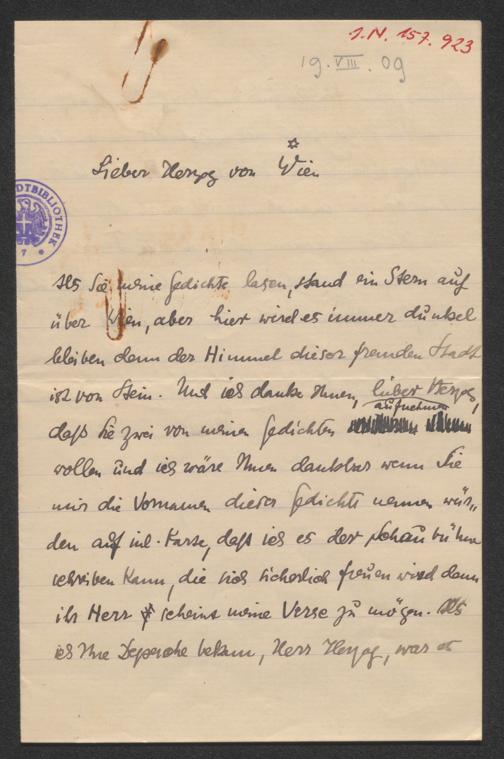 I.N. 157.923
19.VIII.09
Lieber Herzog von Wien
STADTBIBLIOTHEK
7
Als Sie meine Gedichte lasen, stand ein Stern auf
über Wien, aber hier wird es immer dunkel
bleiben denn der Himmel dieser fremden Stadt
ist von Stein. Und ich danke Ihnen, lieber Herzog,
aufnehmen
daß Sie zwei von meinen Gedichten
wollen und ich wäre Ihnen dankbar wenn Sie
mir die Vornamen dieser Gedichte nennen wür„
den auf inl. Karte, daß ich es der Schaubühne
schreiben kann, die sich sicherlich freuen wird denn
ihr Herr scheint meine Verse zu mögen. Als
ich Ihre Depesche bekam, Herr Herzog, war es